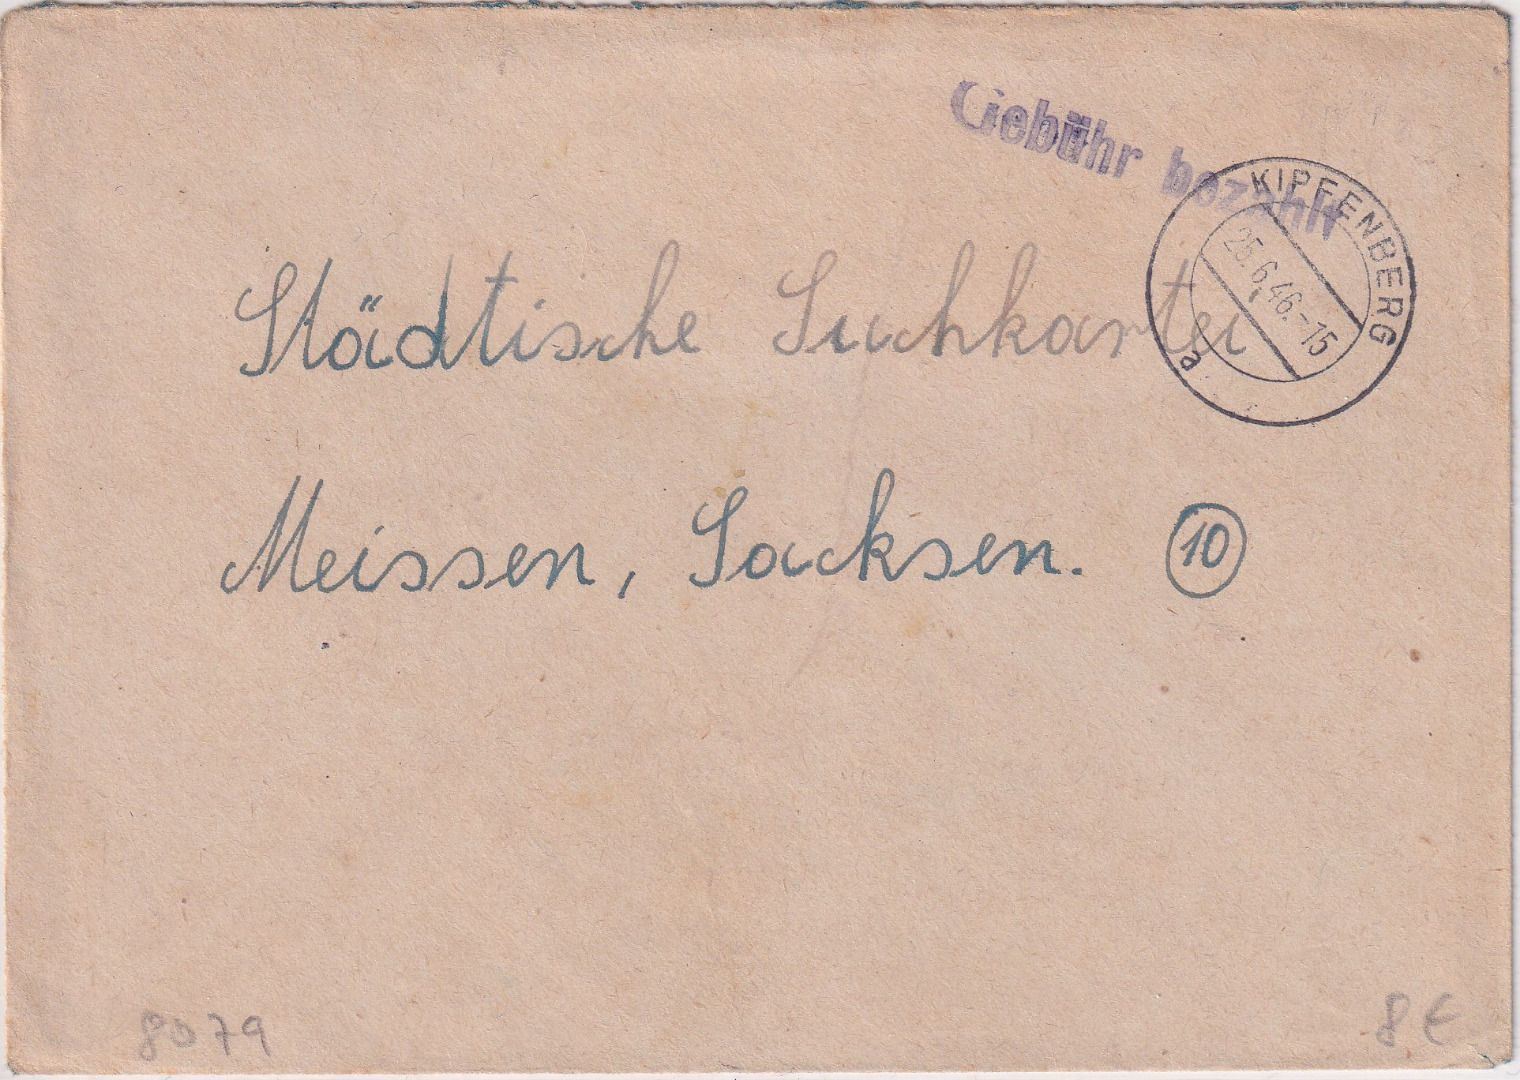 Gebühr bezahlt
KIPFENBERG
25.6.46.-15
a
Städtische Suchkartei
Meissen, Sachsen. 10
8079
8 €